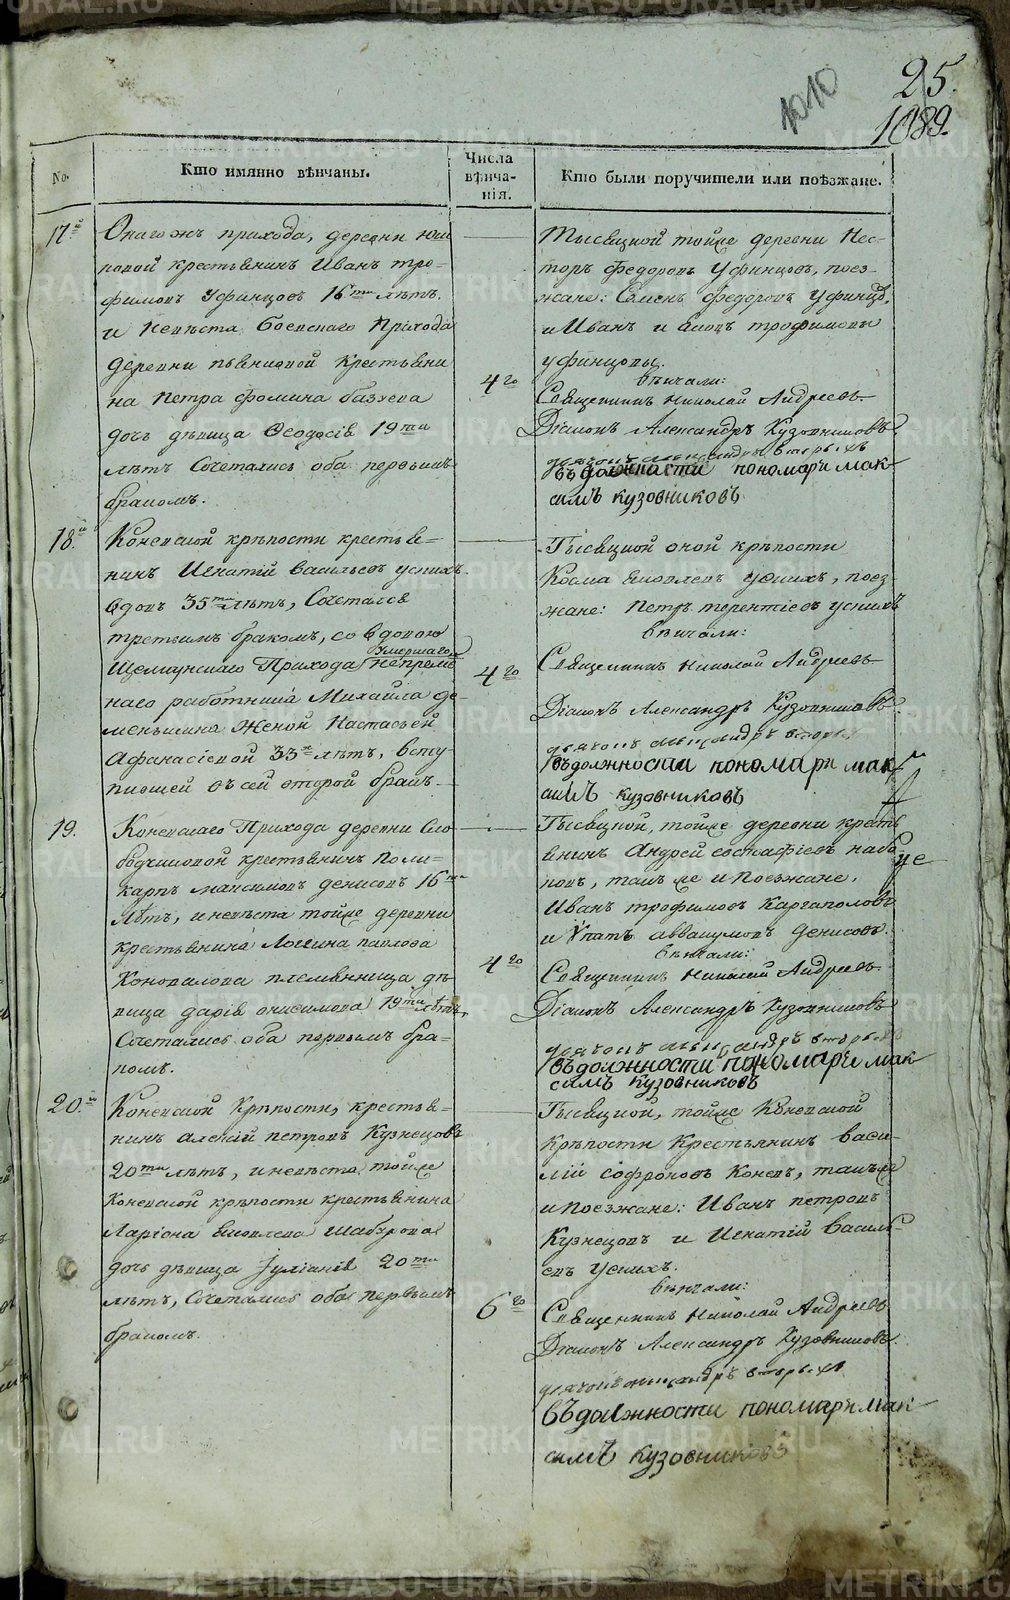 25.
1010
1089.
No.
Кто имянно вѣнчаны.
Числа вѣнча-
нія.
Кто были поручители или поѣзжане.
17й
Онагожъ прихода, деревни
новой крестьянинъ Иванъ тро-
фимовъ Уфинцовъ 16ти лѣтъ.
и невѣста Боевскаго Прихода
деревни крестьяни
на Петра Фомина
дочь дѣвица Ѳеодосія 19ти
лѣтъ Сочетались оба первымъ
бракомъ.
4го
Тысяцкой тойже деревни Нес-
торъ Федоровъ Уфинцовъ, поез-
жане: Семенъ Федоровъ Уфинцо.
и Иванъ и трофимовы
уфинцовы.
вѣнчали:
Священникъ Николай Андреевъ
Діаконъ Александръ Кузовниковъ
дьячокъ александръ вторыхъ
въ должности пономаря мак-
симъ кузовниковъ
18й
Коневской крѣпости крестья-
нинъ Игнатій васильевъ успихъ.
вдовъ 35ти лѣтъ, Сочетался
третьимъ бракомъ, со вдовою
Умершаго
Щелкунскаго Прихода непреме
наго работника Михайла де
меньшина Женой Настасьей
Афанасіевой 33х лѣтъ, всту
пившей въ сей второй бракъ.
4го
Тысяцкой оной крѣпости
Косма яковлевъ успихъ, поез
жане: Петръ терентіевъ успихъ
вѣнчали:
Священникъ Николай Андреевъ
Діаконъ Александръ Кузовниковъ.
дьячокъ александръ вторыхъ
въ должности пономаря мак
симъ кузовниковъ
19.
Коневскаго Прихода деревни Сло
бодчиковой крестьянинъ Поли-
карпъ максимовъ денисовъ 16ти
лѣтъ, и невѣста тойже деревни
крестьянина Логина павлова
Коновалова племянница дѣ
вица дарія онисимова 19ти лѣтъ,
Сочетались оба первымъ бра-
комъ.
4го
Тысяцкой, тойже деревни кресть
янинъ Андрей евстафіевъ наба-
ковъ, такъ же и поезжане.
Иванъ трофимовъ Каргаполовъ
и Ѵпатъ аввакумовъ денисовъ.
вѣнчали:
Священникъ Николай Андреевъ
Діаконъ Александръ Кузовниковъ
дьячокъ александръ вторыхъ
въ должности пономаря мак
симъ кузовниковъ
20й
Коневской Крѣпости, крестья-
нинъ алексій петровъ Кузнецовъ
20ти лѣтъ, и невѣста тойже
Коневской крѣпости крестьянина
Ларіона яковлева Шабурова
дочь дѣвица Іуліанія 20ти
лѣтъ, Сочетались оба первымъ
бракомъ.
6го
Тысяцкой, тойже Коневской
Крѣпости Крестьянинъ васи-
лій софроновъ Коневъ, такъже
и поезжане: Иванъ петровъ
Кузнецовъ и Игнатій василь-
евъ успихъ.
вѣнчали:
Священникъ Николай Андреевъ
Діаконъ Александръ Кузовниковъ.
дьячокъ александръ вторыхъ
въ должности пономаря мак
симъ кузовниковъ